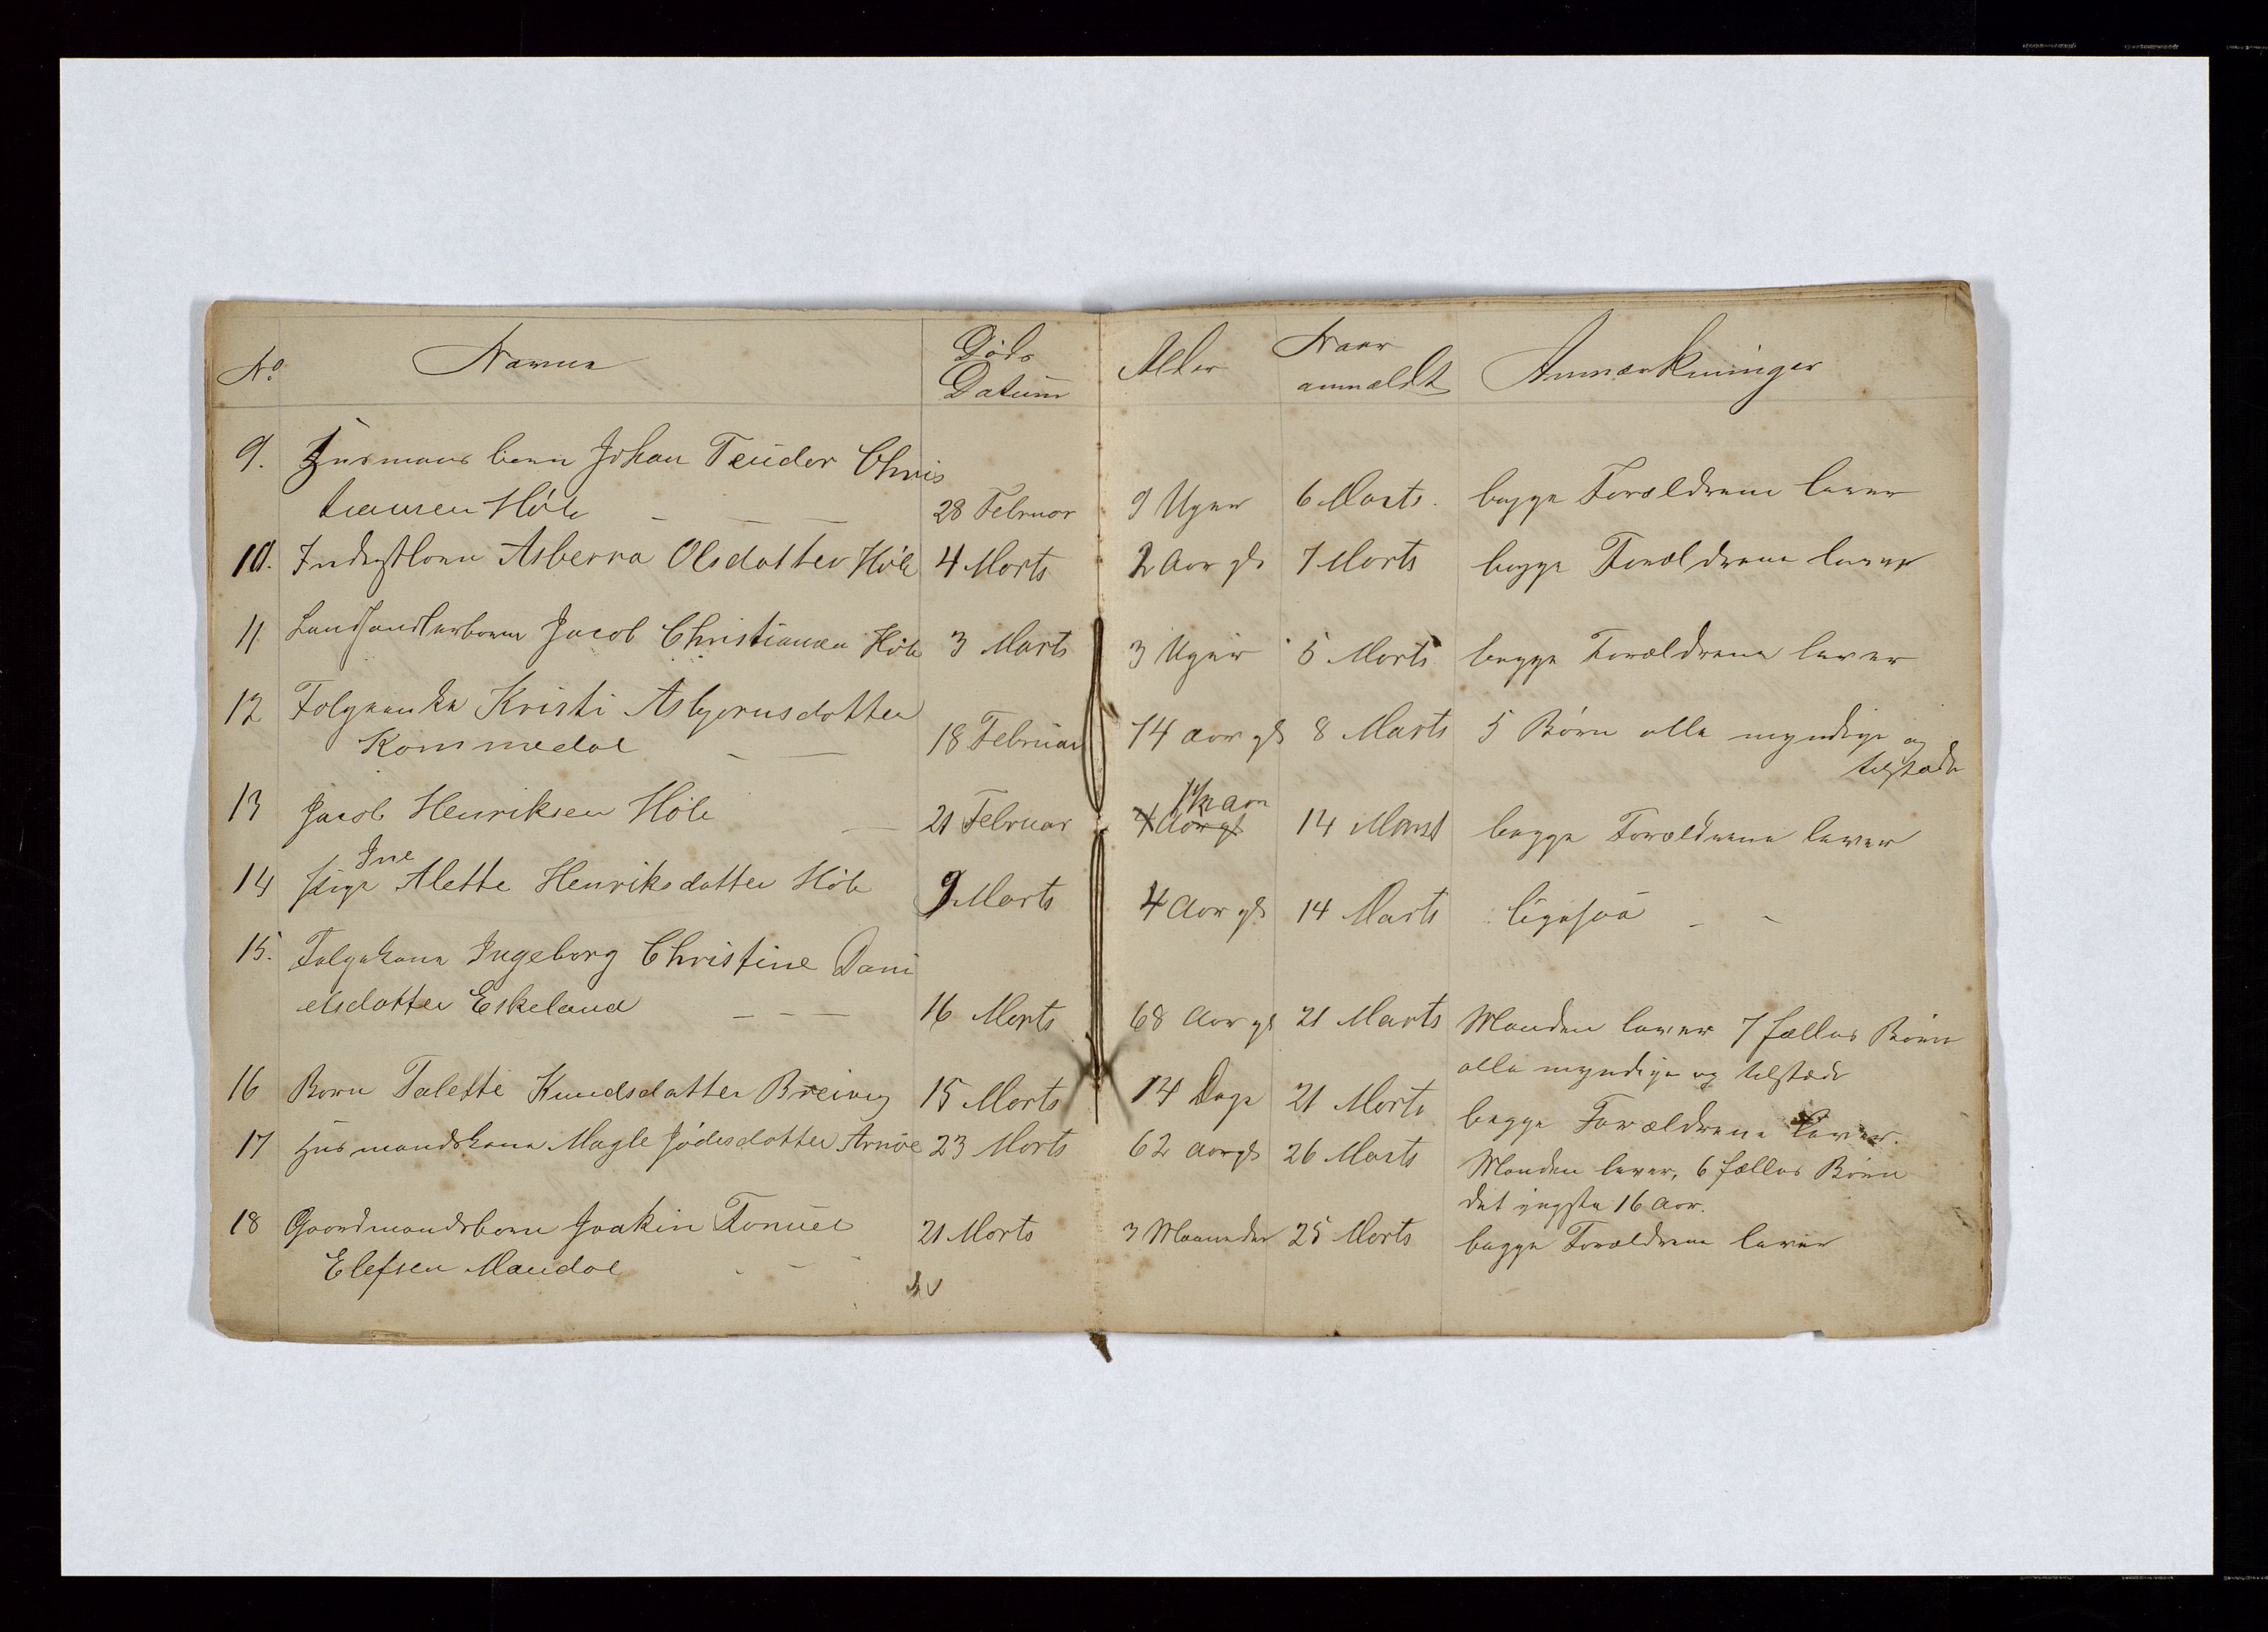 No Navne Døds Datum Alder Naar anmældt Anmærkninger
9. Husmans barn Johan Teüdor Chris
tiansen Høle 28 Februar 9 Uger 6 Marts. begge Forældrene lever
10. Inderstbarn Asberra Olsdatter Høle 4 Marts 2 Aar gl 7 Marts begge Forældrene lever
11 Landhandlerbarn Jacob Christiansen Høle 3 Marts 3 Uger 5 Marts begge Forældrene lever
12 Folgeenke Kristi Asbjornsdatter
Kommedal 18 Februar 74 Aar gl 8 Marts 5 Børn alle myndige og
tilstæde
13 Jacob Henriksen Høle 21 Februar 4 Aar gl 1½ Aar 14 Marst begge Forældrene lever
Ine
14 Pige Alette Henriksdatter Høle 9 Marts 4 Aar gl 14 Marts ligesaa
15. Folgekone Ingeborg Christine Dani
elsdatter Eskeland 16 Marts 68 Aar gl 21 Marts Manden lever 7 fælles Børn
alle myndige og tilstæde
16 Barn Talette Knudsdatter Breivig 15 Marts 14 Dage 21 Marts begge Forældrene lever.
17 Husmandskone Magle Jødesdatter Arnøe 23 Marts 62 Aar gl 26 Marts Manden lever, 6 fælles Børn
det yngste 16 Aar.
18 Gaardmandsbarn Joakin Tonüel 21 Marts 3 Maaneder 25 Marts begge Forældrene lever
Elefsen Maudal